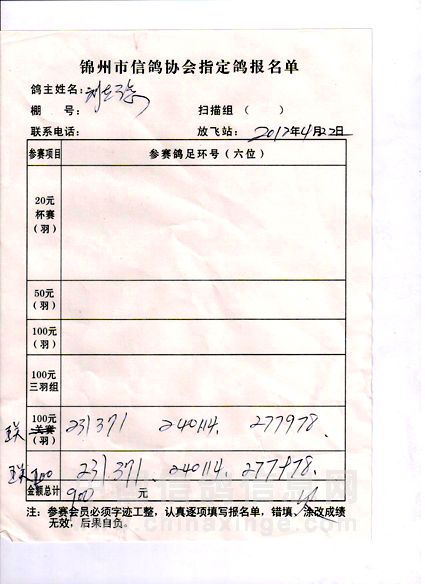 锦州市信鸽协会指定鸽报名单
鸽主姓名：刘
棚　号：　扫描组（　　）
联系电话：　放飞站：2017年4月22日
参赛项目　参赛鸽足环号（六位）
20元
杯赛
（羽）
50元
（羽）
100元
（羽）
100元
三羽组
100元
关赛
（羽）　231371　240114.　277978.
100　231371、240114.　277978.
金额总计　900　元
注：参赛会员必须字迹工整，认真逐项填写报名单，错填、涂改成绩
无效，后果自负。
中国信鸽信息网
www.chinaxinge.com